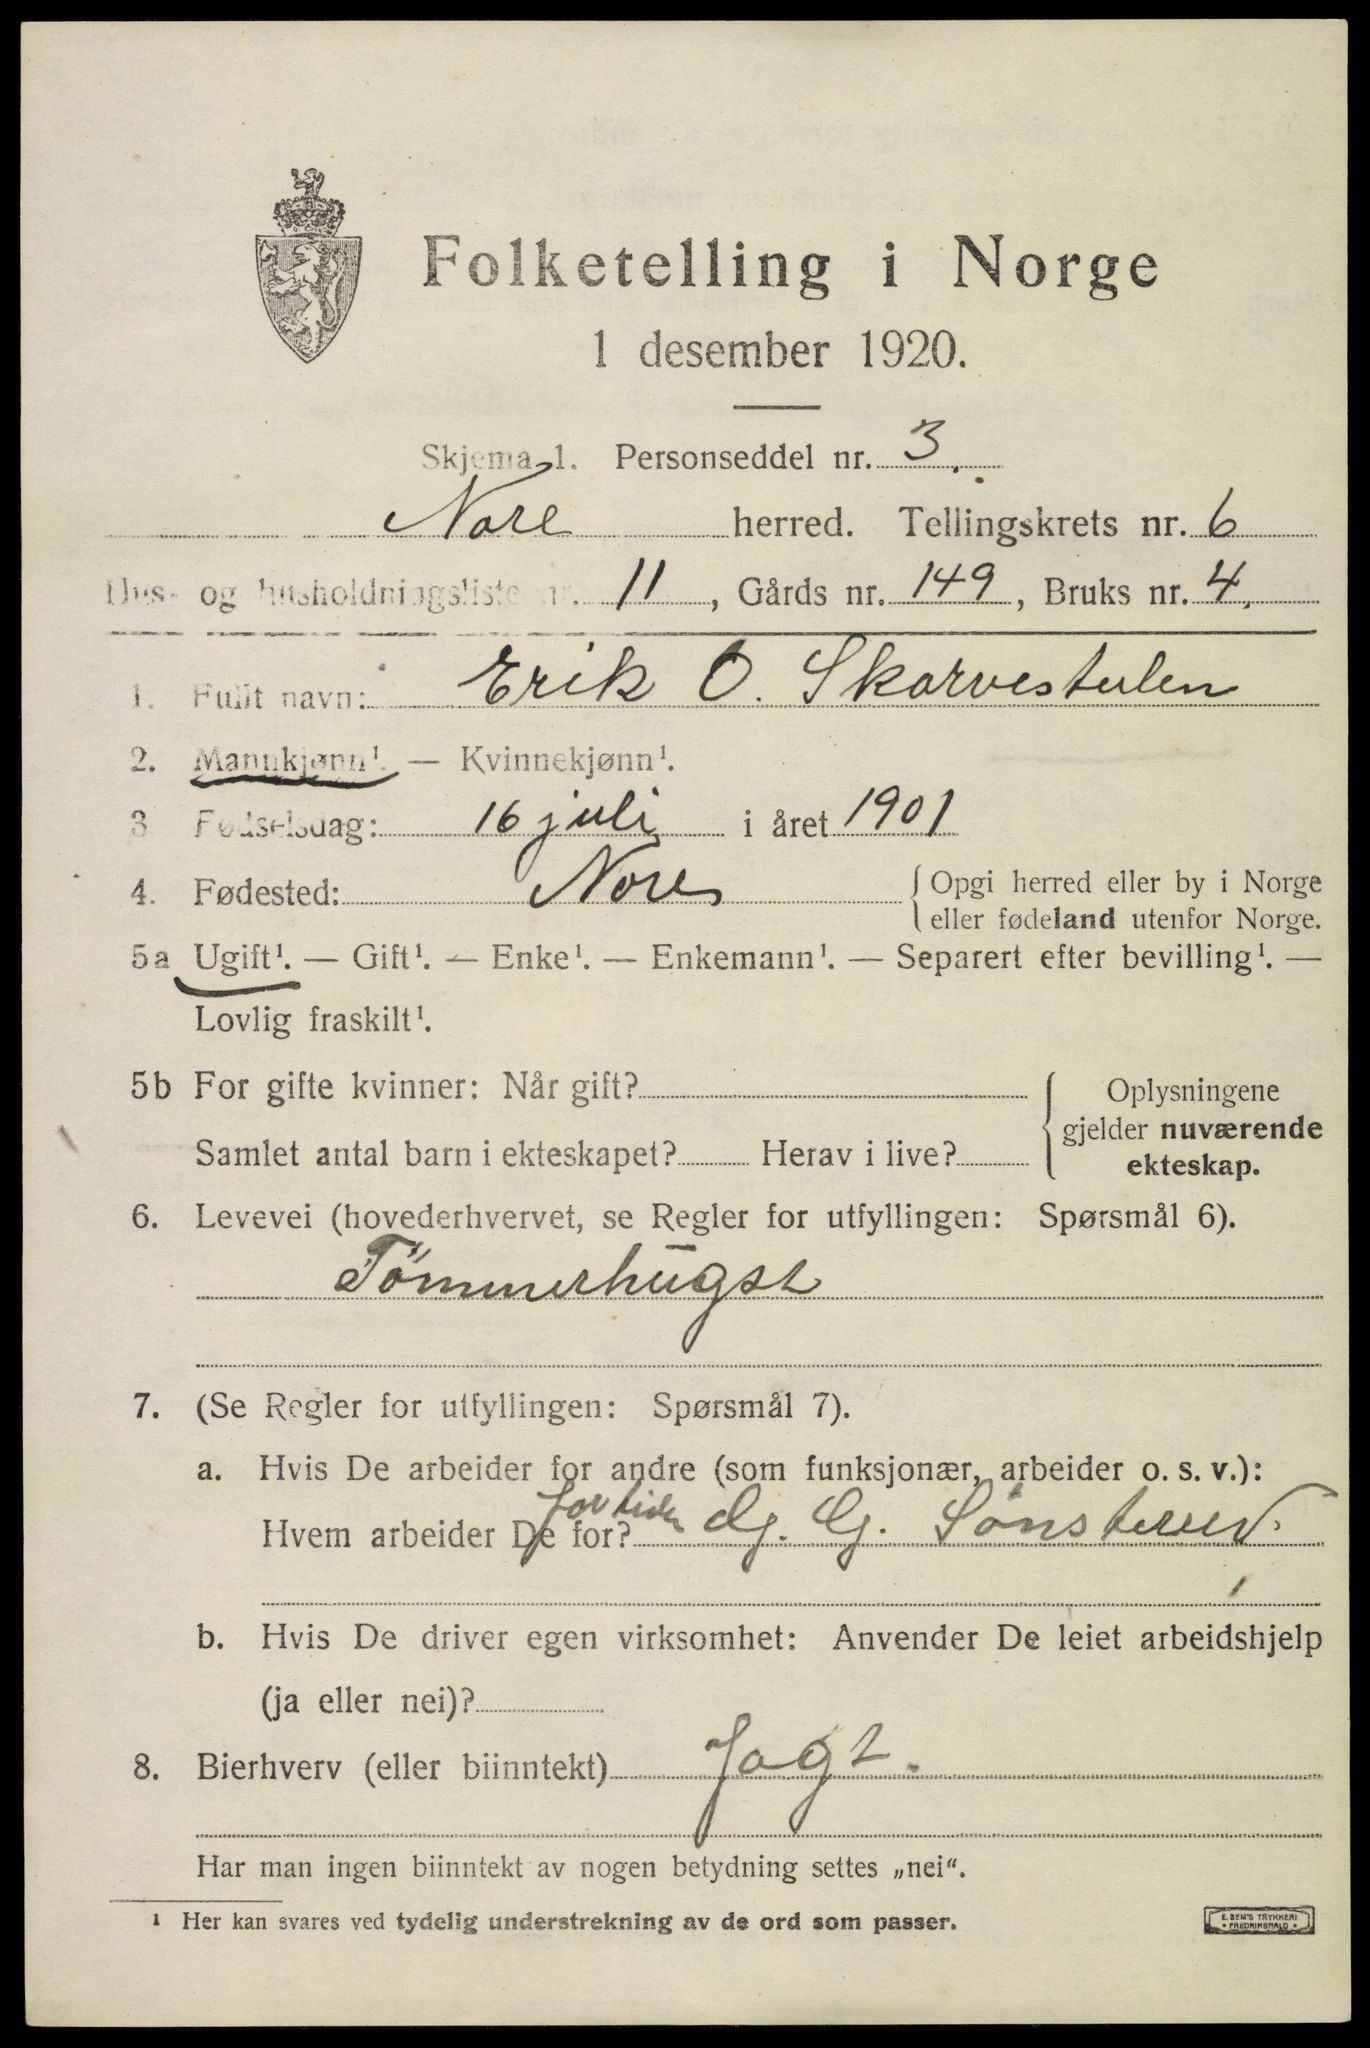 Folketelling i Norge
1 desember 1920.
Skjema 1. Personseddel nr. 3.
Nore herred. Tellingskrets nr. 6
Hus- og husholdningsliste nr. 11, Gårds nr. 149, Bruks nr. 4.
1. Fullt navn: Erik O. Skarvestulen
2. Mannkjønn¹. — Kvinnekjønn¹.
3 Fødselsdag: 16 juli i året 1901
4. Fødested: Nore { Opgi herred eller by i Norge
eller fødeland utenfor Norge.
5a Ugift¹. — Gift¹. — Enke¹. — Enkemann¹. — Separert efter bevilling¹. —
Lovlig fraskilt¹.
5b For gifte kvinner: Når gift?
Samlet antal barn i ekteskapet? Herav i live?
{ Oplysningene
gjelder nuværende
ekteskap.
6. Levevei (hovederhvervet, se Regler for utfyllingen: Spørsmål 6).
Tömmerhugst
7. (Se Regler for utfyllingen: Spørsmål 7).
a. Hvis De arbeider for andre (som funksjonær, arbeider o. s. v.):
for tiden
Hvem arbeider De for? G. Sönsterud.
b. Hvis De driver egen virksomhet: Anvender De leiet arbeidshjelp
(ja eller nei)?
8. Bierhverv (eller biinntekt) Jagt.
Har man ingen biinntekt av nogen betydning settes „nei“.
¹ Her kan svares ved tydelig understrekning av de ord som passer.
E. SEM'S TRYKKERI
FREDRIKSHALD